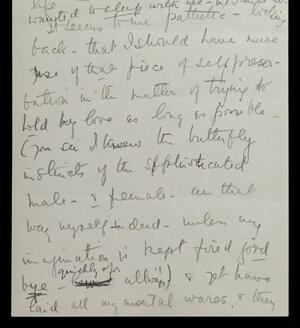 life
wanted to sleep with me - in
It seems to me pathetic - looking
back - that I should have made
use of that piece of self preser-
bation in the matter of trying to
hold my love as long as possible -
(you see I knew the butterfly
instincts of the sophisticated
male - & female - am that
way myself - indeed - unless my
imagination is kept fired good
quickly & for
bye - always!) & yet have
laid all my mental wares, & they